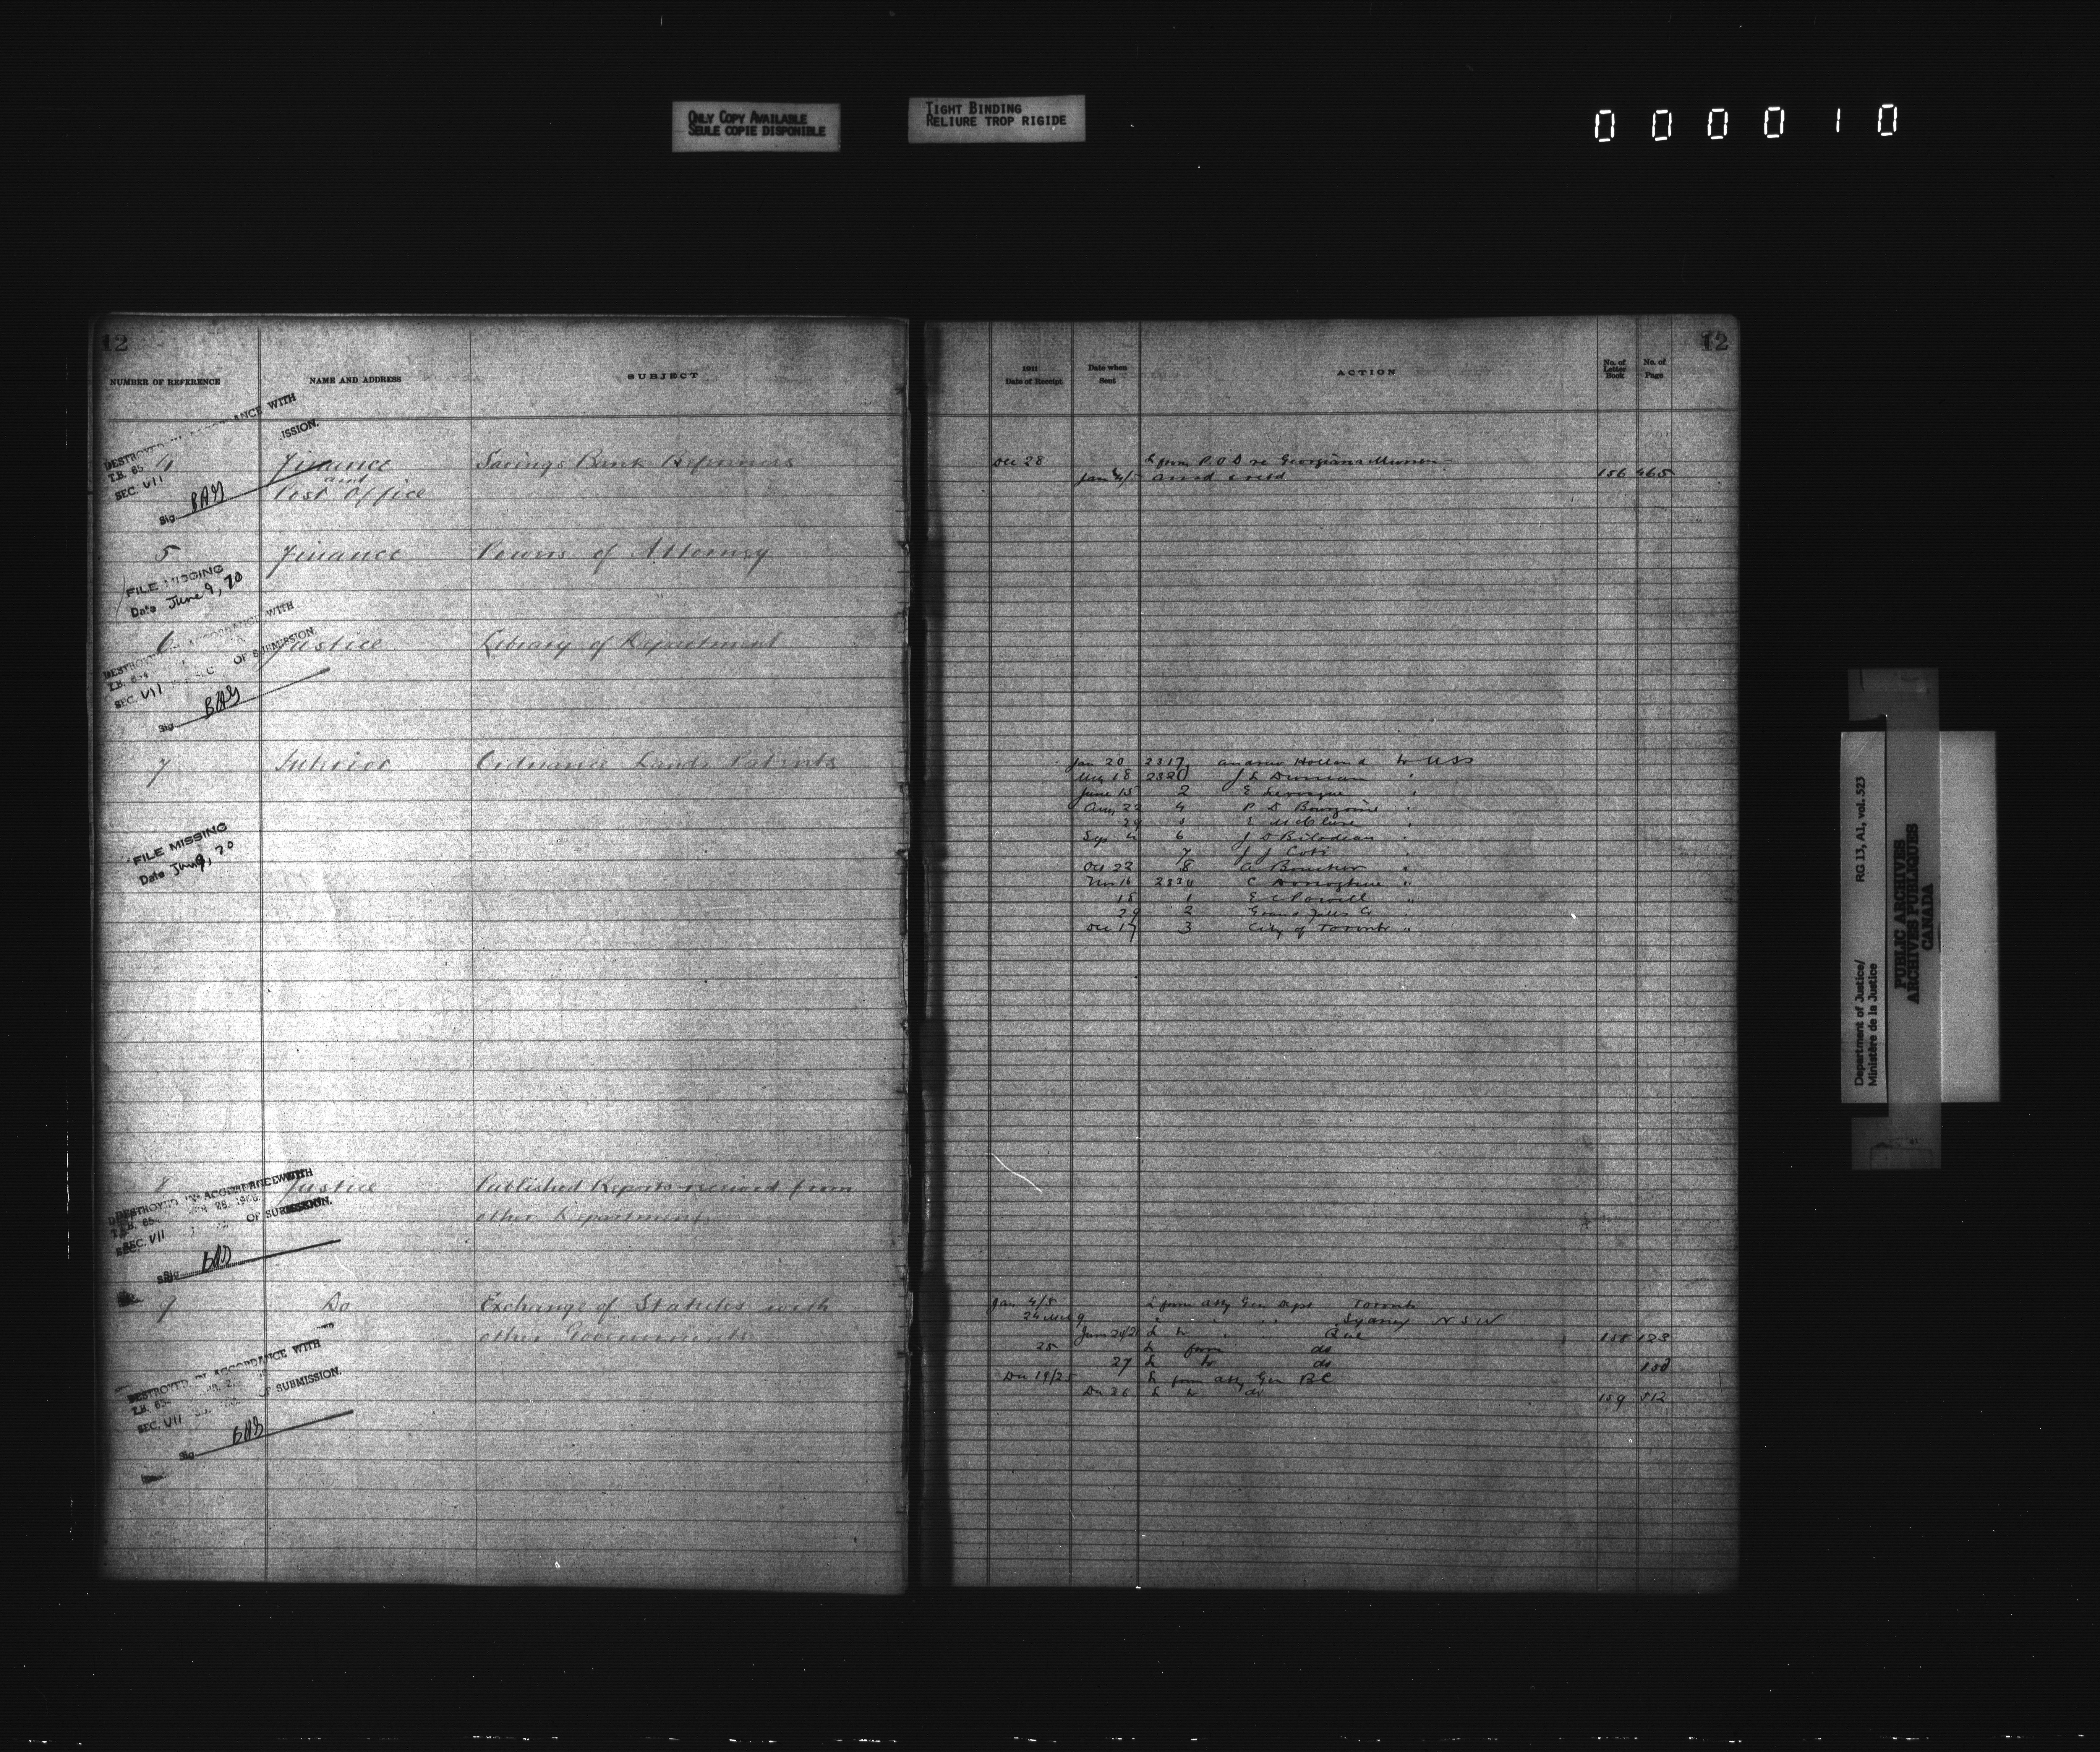 ONLY COPY AVAILABLE
SEULE COPIE DISPONIBLE
TIGHT BINDING
RELIURE TROP RIGIDE
000010
12
NUMBER OF REFERENCE
NAME AND ADDRESS
SUBJECT
4 Finance Savings Bank
and
Post Office
DESTROYED ANCE WITH
T.B. 65 ISSION.
SEC. VII
Sig. BAG
5 Finance Powers of Attorney
FILE MISSING
Date June 9, 70
6 Justice Library of Department
DESTROYED ACCORDANCE WITH
T.B. OF SUBMISSION.
SEC. VII
Sig. BAG
7 Interior Ordnance Lands Patents
FILE MISSING
Date June 9, 70
8 Justice Published Reports received from
other Departments
DESTROYED IN ACCORDANCE WITH
T.B. 65 OF SUBMISSION.
SEC. VII
Sig.
9 Do Exchange of Statutes with
other Governments
DESTROYED IN ACCORDANCE WITH
T.B. 65 OF SUBMISSION.
SEC. VII
Sig. BAG
12
1911
Date of Receipt
Date when
Sent
ACTION
No. of
Letter
Book
No. of
Page
Dec 28 L from P.O.D re Georgiana
Jan 4/ 156 465
Jan 20 2317 Andrew Holland to USS
Aug 18 J L Duncan "
June 15 2 E Levesque "
Aug 22 4 P D "
29 5 E McClure "
Sep 4 6 J D Bilodeau "
7 J J Coté "
Oct 22 8 A "
Nov 16 C Donoghue "
18 1 E C Powell "
29 2 Grand Falls Co "
Dec 17 3 City of Toronto "
Jan 4/5 L from Atty Gen Dept Toronto
24 " " " " Sydney N S W
L to " " Que 123
25 L from do
27 L to do
Dec 19/25 L from Atty Gen BC
Dec 26 L to do 159 512
RG 13, A1, vol. 523
Department of Justice/
Ministère de la Justice
PUBLIC ARCHIVES
ARCHIVES PUBLIQUES
CANADA